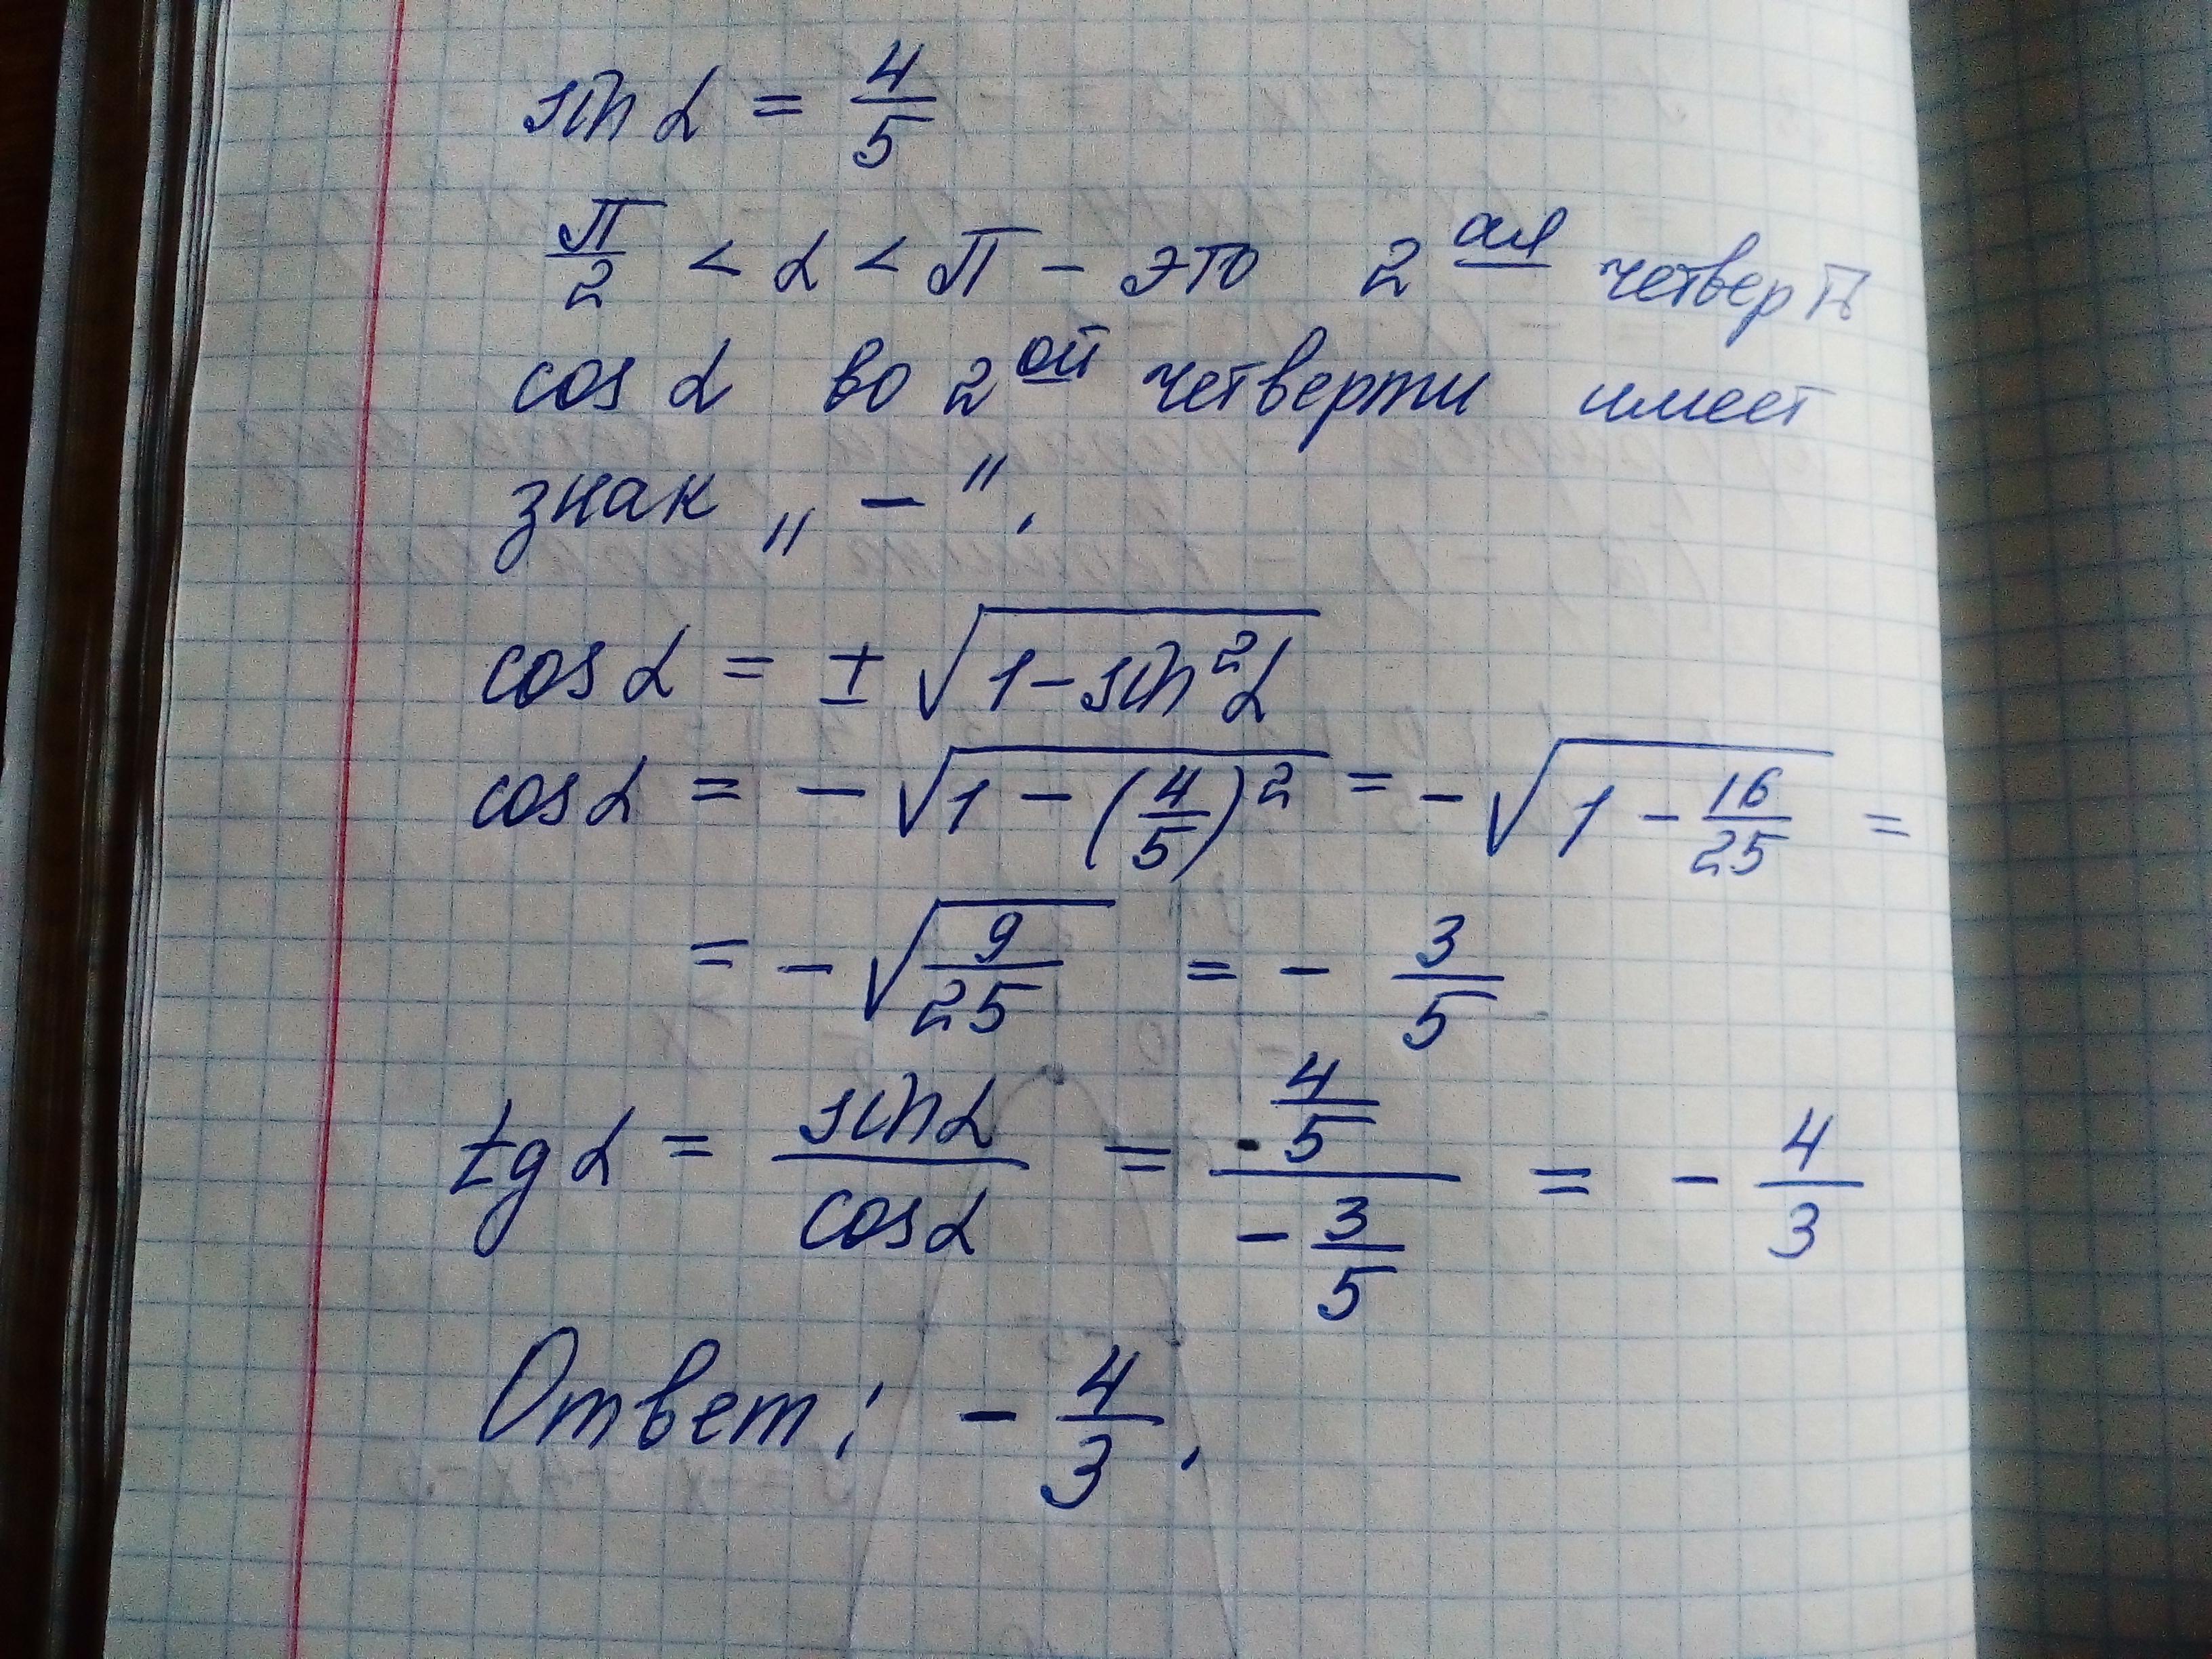 sin α = 4/5
π/2 < α < π - это 2ая четверть
cos α во 2ой четверти имеет
знак „ - ".
cos α = ± √(1 - sin²α)
cos α = - √(1 - (4/5)²) = - √(1 - 16/25) =
= - √(9/25) = - 3/5
tg α = sin α / cos α = (4/5) / (- 3/5) = - 4/3
Ответ: - 4/3.